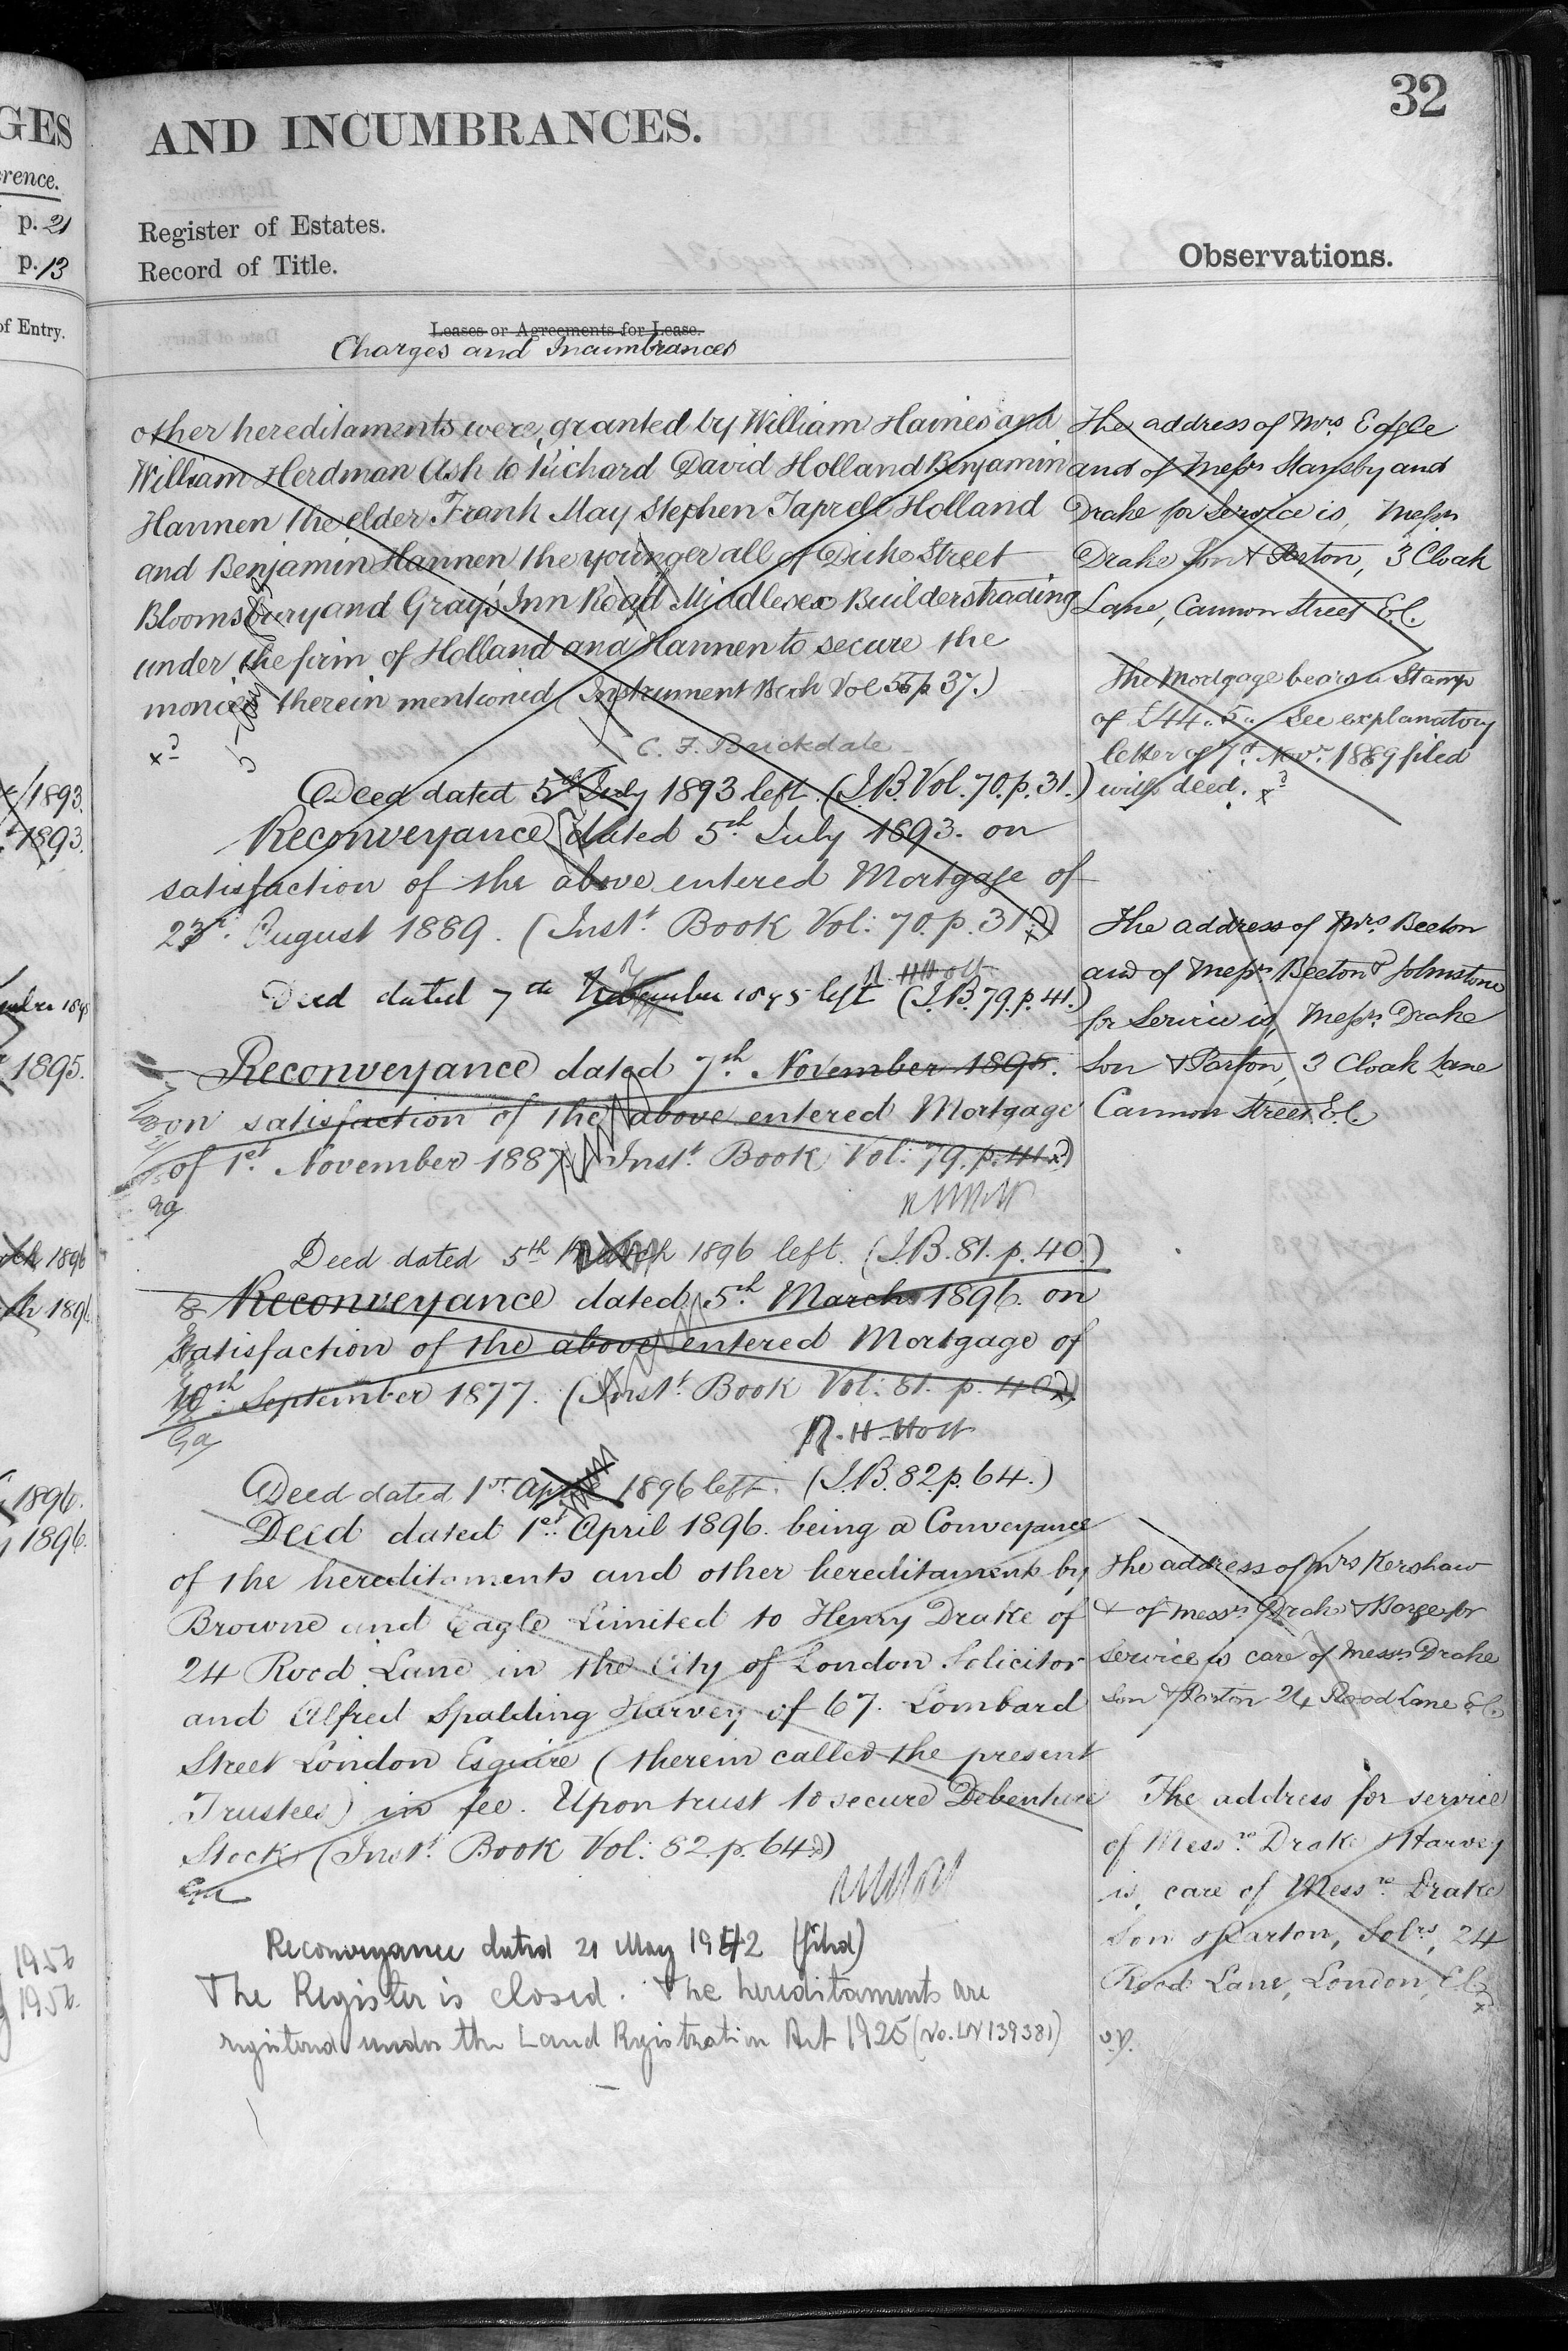 GES
erence.
p. 21
p. 13
of Entry.
1893.
1893.
1895.
1896
1896.
1896.
1896.
1956
1956.
32
AND INCUMBRANCES.
Register of Estates.
Record of Title.
Observations.
Leases or Agreements for Lease.
Charges and Incumbrances
other hereditaments were granted by William Haines and
William Herdman Ash to Richard David Holland Benjamin
Hannen the elder Frank May Stephen Taprell Holland
and Benjamin Hannen the younger all of Duke Street
Bloomsbury and Gray's Inn Road Middlesex Builders trading
under the firm of Holland and Hannen to secure the
monies therein mentioned (Instrument Book Vol 56 p 37.)
C. F. Brickdale
Deed dated 5th July 1893 left. (I.B. Vol. 70. p. 31.)
Reconveyance dated 5th July 1893. on
satisfaction of the above entered Mortgage of
23rd August 1889. (Inst. Book Vol: 70. p. 31.)
R. H. Holt
Deed dated 7th November 1895 left (I.B. 79. p. 41.)
Reconveyance dated 7th November 1895.
on satisfaction of the above entered Mortgage
of 1st November 1887. (Inst. Book Vol: 79. p. 41.)
Deed dated 5th March 1896 left. (I.B. 81. p. 40.)
Reconveyance dated 5th March 1896. on
satisfaction of the above entered Mortgage of
10th September 1877. (Inst. Book Vol: 81. p. 40.)
R. H. Holt
Deed dated 1st April 1896 left. (I.B. 82 p. 64.)
Deed dated 1st April 1896. being a Conveyance
of the hereditaments and other hereditaments by
Browne and Eagle Limited to Henry Drake of
24 Rood Lane in the City of London Solicitor
and Alfred Spalding Harvey of 67. Lombard
Street London Esquire (therein called the present
Trustees) in fee. Upon trust to secure Debenture
Stock (Inst. Book Vol: 82. p. 64.)
Reconveyance dated 21 May 1942 (filed)
The Register is closed. The hereditaments are
registered under the Land Registration Act 1925 (No. LN 139381)
The address of Mrs. Eagle
and of Messrs Stansby and
Drake for Service is, Messrs
Drake Son & Parton, 3 Cloak
Lane, Cannon Street E.C.
The Mortgage bears a Stamp
of £44. 5.. See explanatory
letter of 7th Novr. 1889 filed
with deed.
The address of Mrs. Beeton
and of Messrs Beeton & Johnstone
for Service is, Messrs. Drake
Son & Parton, 3 Cloak Lane
Cannon Street E.C
The address of Mrs Kershaw
& of Messrs Drake & Barge for
service is care of Messrs Drake
Son & Parton 24 Rood Lane E.C.
The address for service
of Messrs. Drake & Harvey
is, care of Messrs. Drake
Son & Parton, Solrs, 24
Rood Lane, London, E.C.